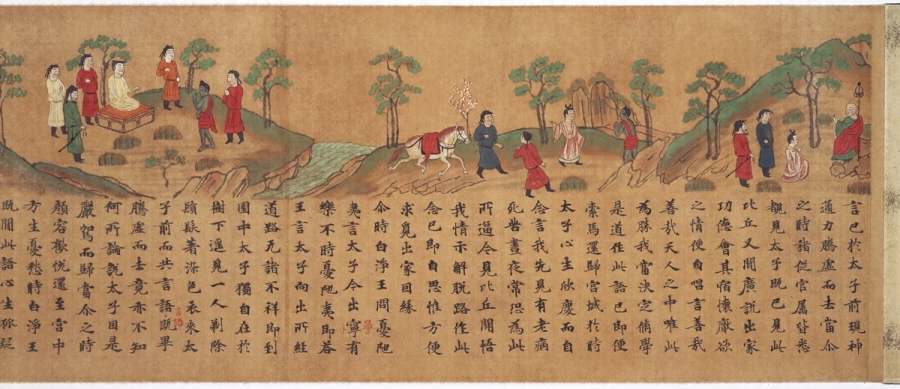 言已於太子前現神
通力騰虛而去當尒
之時諸從官屬皆悉
覩見太子既已見此
比丘又聞廣說出家
功德會其宿懷猒欲
之情便自唱言善哉
善哉天人之中唯此
為勝我當決定脩學
是道作此語已即便
索馬還歸宮城於時
太子心生欣慶而自
念言我先見有老病
死苦晝夜常恐為此
所逼今見比丘開悟
我情示解脫路作此
念已即自思惟方便
求覓出家因緣
尒時白淨王問憂陁
夷言太子今出寧有
樂不時憂陁夷即荅
王言太子向出所經
道路无諸不祥即到
園中太子獨自在於
樹下遥見一人剃除
鬚髮著染色衣來太
子前而共言語既畢
騰虛而去竟亦不知
何所論說太子因是
嚴駕而歸當尒之時
顏容歡悅還至宮中
方生憂愁時白淨王
既聞此語心生狐疑